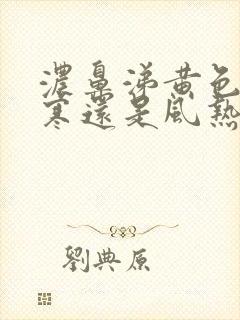 濃鼻涕黄色
寒還是風熱
劉典原